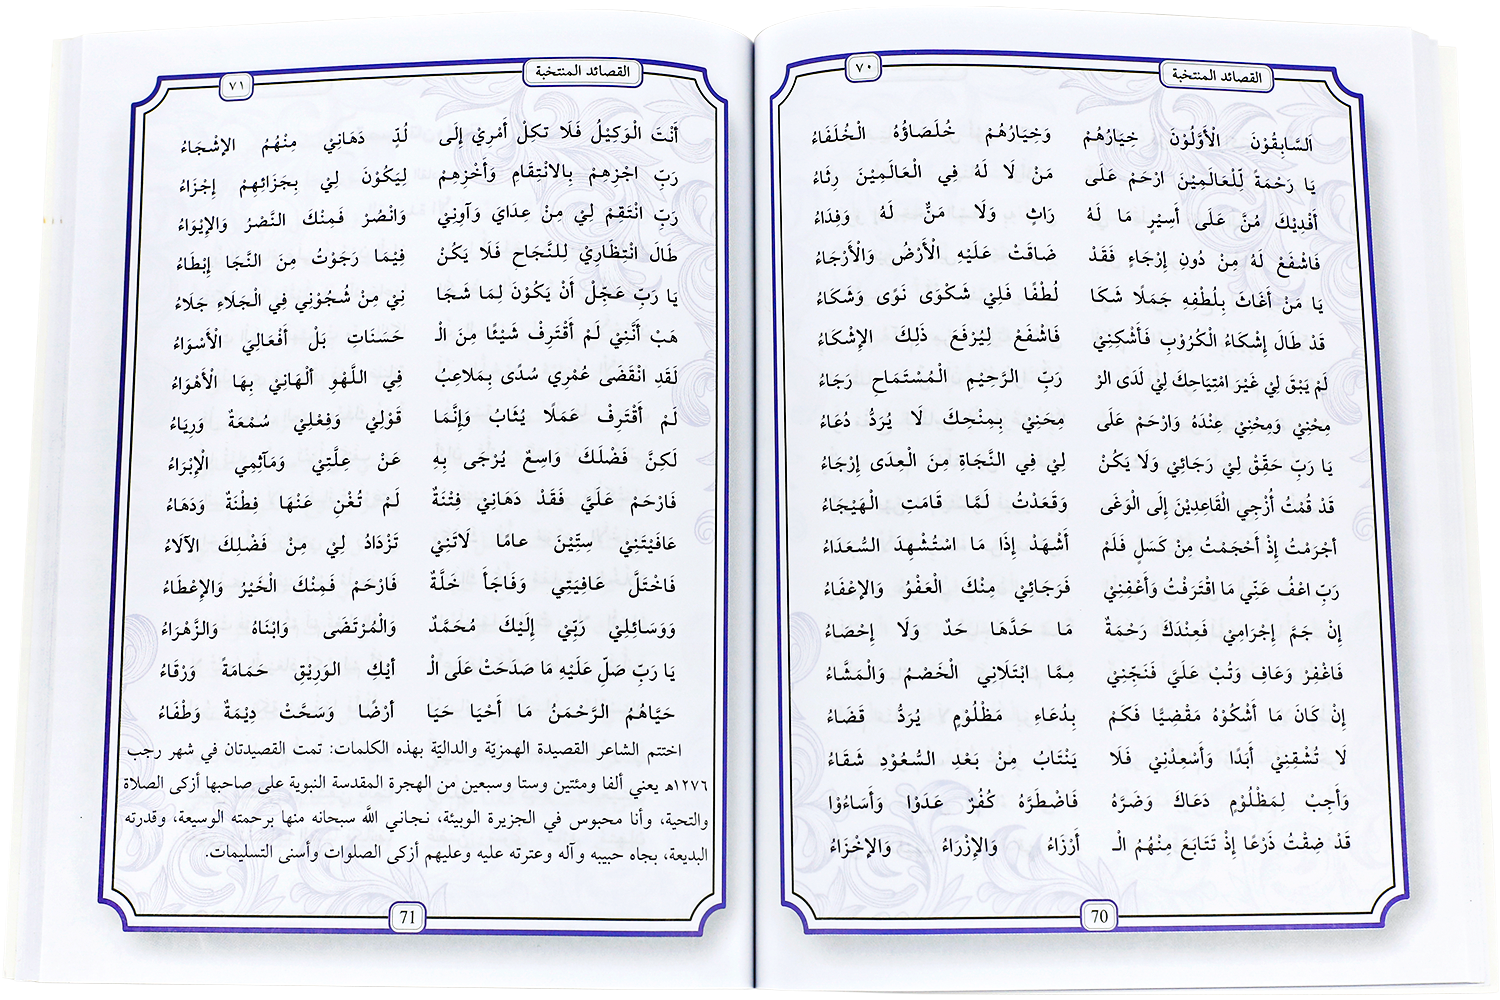 القصائد المنتخبة
٧٠
اَلسَّابِقُوْنَ الْأَوَّلُوْنَ خِيَارُهُمْ وَخِيَارُهُمْ خُلَصَاؤُهُ الْخُلَفَاءُ
يَا رَحْمَةً لِّلْعَالَمِيْنَ ارْحَمْ عَلَى مَنْ لَا لَهُ فِي الْعَالَمِيْنَ رِثَاءُ
أَفْدِيْكَ مُنَّ عَلَى أَسِيْرٍ مَا لَهُ رَاثٍ وَلَا مَنٌّ لَهُ وَفِدَاءُ
فَاشْفَعْ لَهُ مِنْ دُونِ إِرْجَاءٍ فَقَدْ ضَاقَتْ عَلَيْهِ الْأَرْضُ وَالْأَرْجَاءُ
يَا مَنْ أَغَاثَ بِلُطْفِهِ جَمَلًا شَكَا لُطْفًا فَلِيْ شَكْوَى نَوًى وَشَكَاءُ
قَدْ طَالَ إِشْكَاءُ الْكُرُوْبِ فَأَشْكِنِيْ فَاشْفَعْ لِيُرْفَعَ ذٰلِكَ الإِشْكَاءُ
لَمْ يَبْقَ لِيْ غَيْرَ امْتِيَاحِكَ لِيْ لَدَى الرْ رَبِّ الرَّحِيْمِ الْمُسْتَمَاحِ رَجَاءُ
مِحْنِيْ وَمِحْنِيْ عِنْدَهُ وَارْحَمْ عَلَى مِحَنِيْ بِمِنْحِكَ لَا يُرَدُّ دُعَاءُ
يَا رَبِّ حَقِّقْ لِيْ رَجَائِيْ وَلَا يَكُنْ لِيْ فِي النَّجَاةِ مِنَ الْعِدَى إِرْجَاءُ
قَدْ قُمْتُ أُزْجِي الْقَاعِدِيْنَ إِلَى الْوَغَى وَقَعَدْتُ لَمَّا قَامَتِ الْهَيْجَاءُ
أجْرَمْتُ إِذْ أَحْجَمْتُ مِنْ كَسَلٍ فَلَمْ أَشْهَدْ إِذَا مَا اسْتُشْهِدَ السُّعَدَاءُ
رَبِّ اعْفُ عَنِّي مَا اقْتَرَفْتُ وَأَعْفِنِيْ فَرَجَائِيْ مِنْكَ الْعَفْوُ وَالإِعْفَاءُ
إِنْ جَمَّ إِجْرَامِيْ فَعِنْدَكَ رَحْمَةٌ مَا حَدَّهَا حَدٌ وَلَا إِحْصَاءُ
فَاغْفِرْ وَعَافِ وَتُبْ عَلَيَّ فَنَجِّنِيْ مِمَّا ابْتَلَانِي الْخَصْمُ وَالْمَشَّاءُ
إِنْ كَانَ مَا أَشْكُوْهُ مَقْضِيًّا فَكَمْ بِدُعَاءِ مَظْلُوْمٍ يُرَدُّ قَضَاءُ
لَا تُشْقِنِيْ أَبَدًا وَأَسْعِدْنِيْ فَلَا يَنْتَابُ مِنْ بَعْدِ السُّعُوْدِ شَقَاءُ
وَأَجِبْ لِمَظْلُوْمٍ دَعَاكَ وَضَرَّهُ فَاضْطَرَّهُ كُفُرٌ عَدَوْا وَأَسَاءُوْا
قَدْ ضِقْتُ ذَرْعًا إِذْ تَتَابَعَ مِنْهُمُ الْـ أَرْزَاءُ وَالإِزْرَاءُ وَالإِخْزَاءُ
70
القصائد المنتخبة
٧١
أَنْتَ الْوَكِيْلُ فَلَا تَكِلْ أَمْرِيْ إِلَى لُدٍّ دَهَانِيْ مِنْهُمُ الإِشْجَاءُ
رَبِّ اجْزِهِمْ بِالانْتِقَامِ وَأَخْزِهِمْ لِيَكُوْنَ لِيْ بِجَزَائِهِمْ إِجْزَاءُ
رَبِّ انْتَقِمْ لِيْ مِنْ عِدَايَ وَآوِنِي وَانْصُرْ فَمِنْكَ النَّصْرُ وَالإِيْوَاءُ
طَالَ انْتِظَارِيْ لِلنَّجَاحِ فَلَا يَكُنْ فِيْمَا رَجَوْتُ مِنَ النَّجَا إِبْطَاءُ
يَا رَبِّ عَجِّلْ أَنْ يَكُوْنَ لِمَا شَجَا نِيْ مِنْ شُجُوْنِي فِي الْجَلَاءِ جَلَاءُ
هَبْ أَنَّنِيْ لَمْ أَقْتَرِفْ شَيْئًا مِنَ الْـ حَسَنَاتِ بَلْ أَفْعَالِيَ الْأَسْوَاءُ
لَقَدِ انْقَضَى عُمْرِي سُدًى بِمَلَاعِبُ فِي اللَّهْوِ أَلْهَانِيْ بِهَا الْأَهْوَاءُ
لَمْ أَقْتَرِفْ عَمَلًا يُثَابُ وَإِنَّمَا قَوْلِيْ وَفِعْلِيْ سُمْعَةٌ وَرِيَاءُ
لَكِنَّ فَضْلَكَ وَاسِعٌ يُرْجَى بِهِ عَنْ عِلَّتِيْ وَمَآثِمِي الْإِبْرَاءُ
فَارْحَمْ عَلَيَّ فَقَدْ دَهَانِيْ فِتْنَةٌ لَمْ تُغْنِ عَنْهَا فِطْنَةٌ وَدَهَاءُ
عَافَيْتَنِيْ سِتِّيْنَ عامًا لَاتَنِيْ تَزْدَادُ لِيْ مِنْ فَضْلِكَ الآلَاءُ
فَاخْتَلَّ عَافِيَتِي وَفَاجَأَ خَلَّةٌ فَارْحَمْ فَمِنْكَ الْخَيْرُ وَالإِعْطَاءُ
وَوَسَائِلِيْ رَبِّيْ إِلَيْكَ مُحَمَّدٌ وَالْمُرْتَضَى وَابْنَاهُ وَالزَّهْرَاءُ
يَا رَبِّ صَلِّ عَلَيْهِ مَا صَدَحَتْ عَلَى الْـ أَيْكِ الوَرِيْقِ حَمَامَةٌ وَرْقَاءُ
حَيَّاهُمُ الرَّحْمَنُ مَا أَحْيَا حَيَا أَرْضًا وَسَحَّتْ دِيْمَةٌ وَطْفَاءُ
اختتم الشاعر القصيدة الهمزيّة والداليّة بهذه الكلمات: تمت القصيدتان في شهر رجب
١٢٧٦هـ يعني ألفا ومئتين وستا وسبعين من الهجرة المقدسة النبوية على صاحبها أزكى الصلاة
والتحية، وأنا محبوس في الجزيرة الوبيئة، نجاني الله سبحانه منها برحمته الوسيعة، وقدرته
البديعة، بجاه حبيبه وآله وعترته عليه وعليهم أزكى الصلوات وأسنى التسليمات.
71